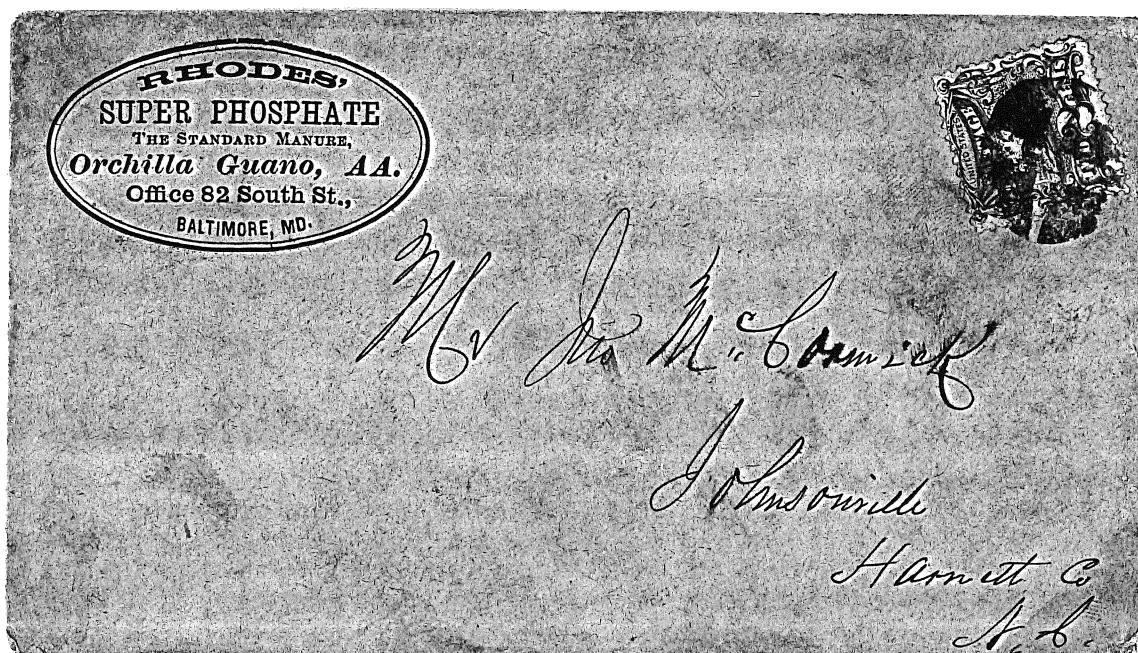 RHODES'
SUPER PHOSPHATE
THE STANDARD MANURE,
Orchilla Guano, AA.
Office 82 South St.,
BALTIMORE, MD.
Mr Jno McCormick
Johnsonville
Harnett Co
N. C.